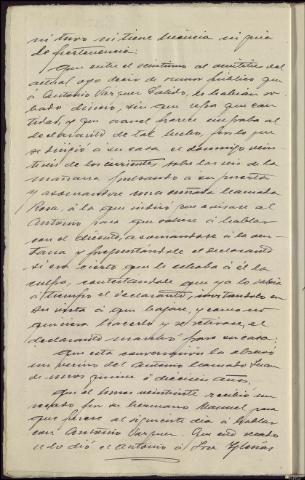 ni tuvo ni tiene licencia ni guia
de pertenencia:
Que entre el veintiuno al veintitres del
actual oyó decir de rumor público que
á Antonio Vazquez Pulido, le habian ro-
bado dinero, sin que sepa que can-
tidad, y que aquel hacia culpable al
declarante de tal hecho, por lo que
se dirijió á su casa el domingo vein-
ticinco de los corrientes, sobre las seis de la
mañana pulsando a su puerta
y asomandose una criada llamada
Rosa, á la que indicó que avisase al
Antonio para que saliese á hablar
con el dicente, asomandose á la ven-
tana y preguntandole el declarante
si era cierto que le echaba á él la
culpa, contestandole que ya lo sabria
á tiempo el declarante, invitandole en
su vista á que bajase, y como no
quisiera hacerlo y se retirase, el
declarante marchó para su casa:
Que esta conversacion la
un primo del Antonio llamado Juan
de unos quince ó dieciseis años.
Que el lunes veintiseis recibió un
recado por su hermano Manuel para
que fuese al siguiente dia á hablar
con Antonio Vazquez. Que este recado
se lo dió el Antonio á José Iglesias